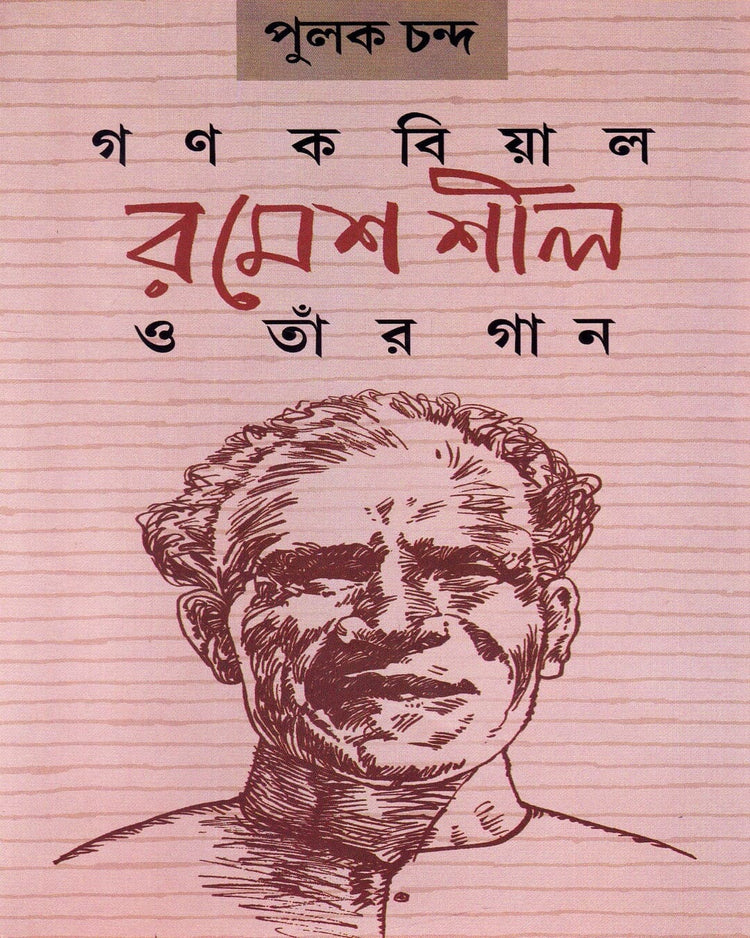 পুলক চন্দ
গণকবিয়াল
রমেশ শীল
ও তাঁর গান